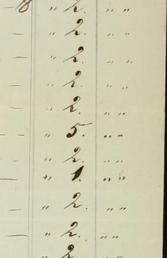 8 " 2. " "
" 2. " "
— " 2. " "
— " 2. " "
" 2. " "
— " 5. " "
" 2. " "
" 1. " "
— " 2. " "
— " 2. " "
" 2. " "